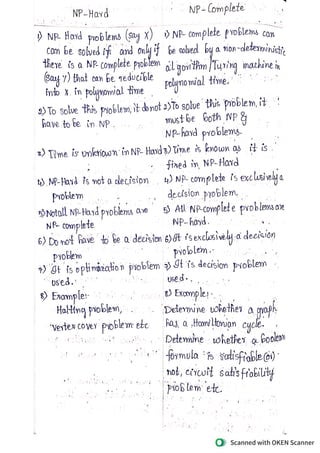 NP-Hard
NP-Complete
1) NP. Hard problems (say X)
can be solved if and only if
there is a NP-complete problem
(say Y) that can be reducible
into X in polynomial time
2) To solve this problem, it donot
have to be in NP.
3) Time is unknown in NP-Hard
4) NP-Hard is not a decision
problem
5) Not all NP-Hard problems are
NP-complete
6) Do not have to be a decision
problem
7) It is optimization problem
used.
8) Example:-
Halting problem,
Vertex cover problem etc
1) NP-complete problems can
be solved by a non-deterministic
algorithm/Turing machine in
polynomial time.
2) To solve this problem, it
must be both NP &
NP-hard problems.
3) Time is known as it is
fixed in NP-Hard
4) NP-complete is exclusively a
decision problem.
5) All NP-complete problems are
NP-hard.
6) It is exclusively a decision
problem.
7) It is decision problem
used.
8) Example:-
Determine whether a graph
has a Hamiltonian cycle.
Determine whether a boolean
formula is satisfiable (or)
not, circuit satisfiability
problem etc.
Scanned with OKEN Scanner